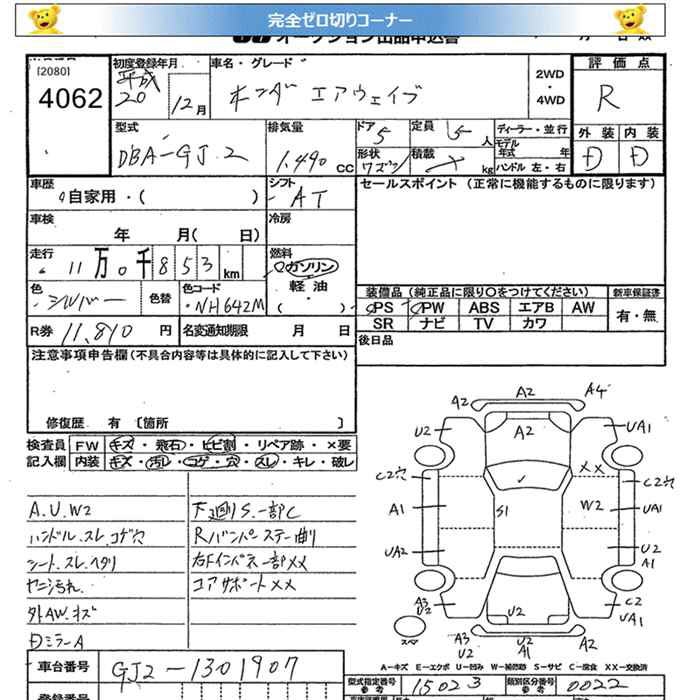 完全ゼロ切りコーナー
オークション出品申込書
[2080]
4062
初度登録年月
平成
20
12月
車名・グレード
ホンダ エアウェイブ
2WD
・
4WD
評価点
R
外装 内装
D D
型式
DBA-GJ2
排気量
1.490 CC
ドア
5
定員
5人
ディーラー・並行
モデル年式 年
ハンドル 左・右
形状
ワゴン
積載
kg
車歴
自家用・( )
シフト
AT
セールスポイント (正常に機能するものに限ります)
車検
年 月( 日)
冷房
走行
11万0千853km
燃料
ガソリン
軽油
( )
色
シルバー
色替
色コード
NH642M
装備品 (純正品に限り○をつけてください)
PS PW ABS エアB AW
SR ナビ TV カワ
新車保証書
有・無
R券 11,810 円
名変通知期限 月 日
後日品
注意事項申告欄(不具合内容等は具体的に記入して下さい)
修復歴 有 [箇所 ]
検査員 FW キズ・飛石・ヒビ割・リペア跡・×要
記入欄 内装 キズ・汚レ・コゲ・穴・スレ・キレ・破レ
A.U.W2
ハンドル.スレ コゲ穴
シート.スレ.ヘタリ
ヤニ汚れ
外AW.キズ
Dミラー A
下廻りS.一部C
Rバンパーステー曲り
右Fインパネ一部XX
コアサポートXX
A2
A2
A4
U2
A2
UA1
C2穴
XX
C2穴
A1
S1
W2
UA1
UA2
U2
A1
A3
U2
U2
C2
UA1
スペア
A3
U2
U2
A1
A2
A-キズ E-エクボ U-凹み W-補修跡 S-サビ C-腐食 XX-交換済
車台番号 GJ2-1301907
型式指定番号 15023
類別区分番号 0022
登録番号